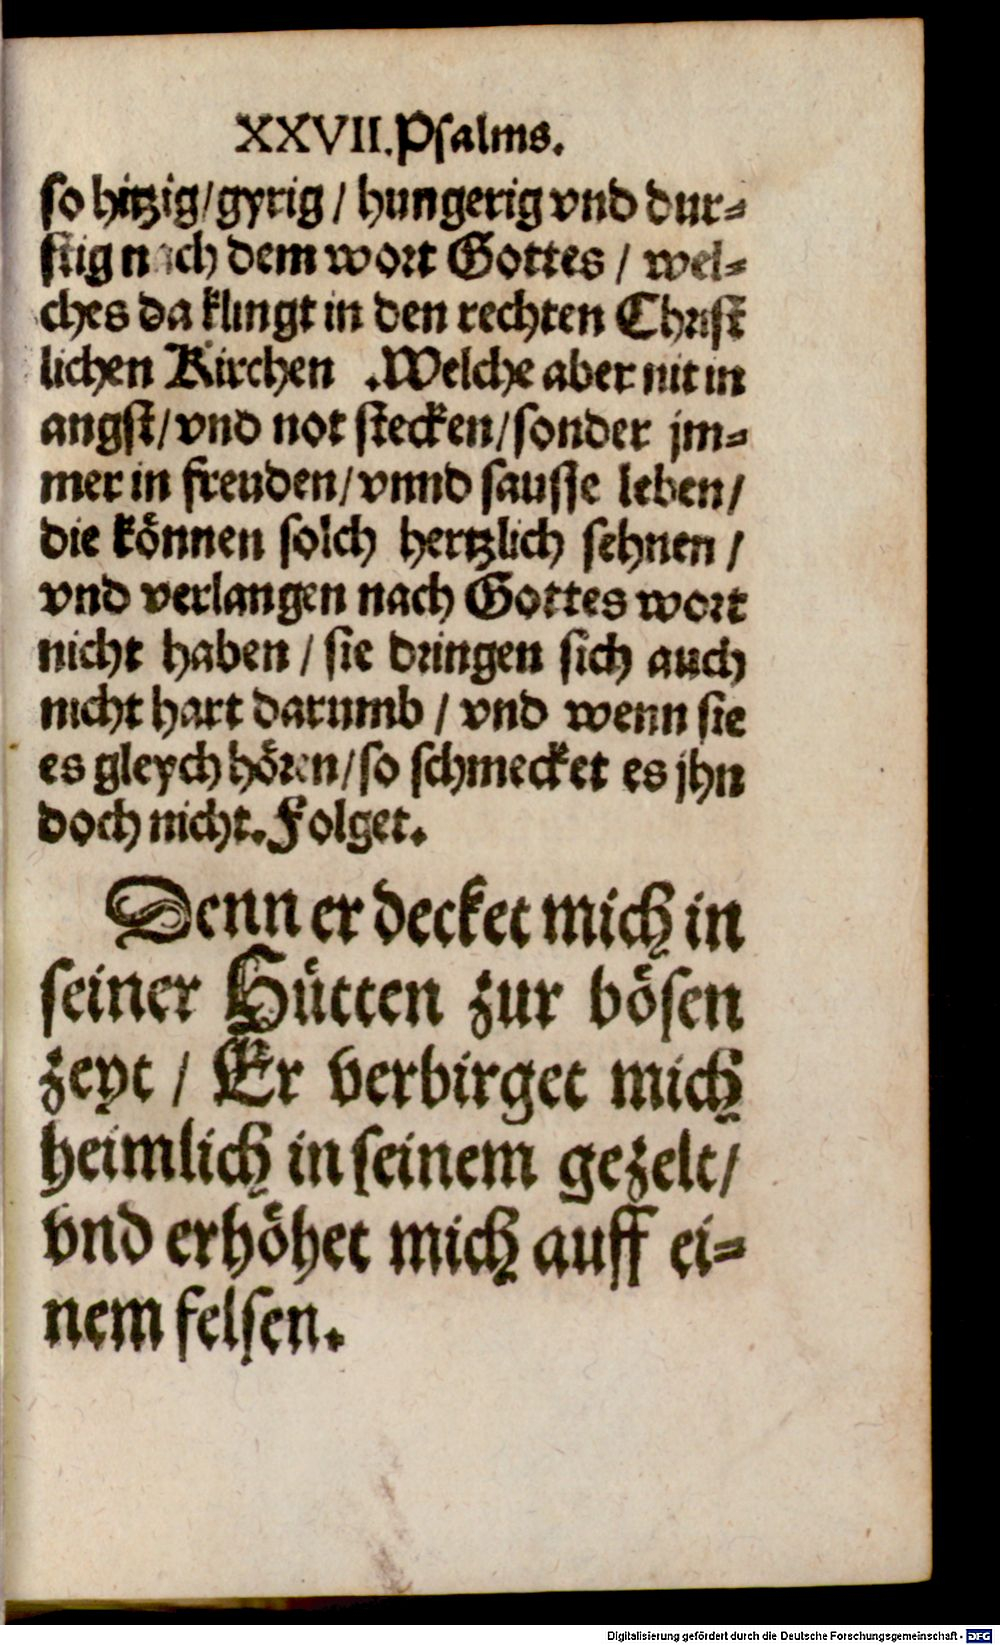 XXVII. Psalms.
so hitzig / gyrig / hungerig vnd dur⸗
stig nach dem wort Gottes / wel⸗
ches da klingt in den rechten Christ
lichen Kirchen .Welche aber nit in
angst / vnd not stecken / sonder jm⸗
mer in freuden / vnnd sausse leben /
die können solch hertzlich sehnen /
vnd verlangen nach Gottes wort
nicht haben / sie dringen sich auch
nicht hart darumb / vnd wenn sie
es gleych hören / so schmecket es jhn
doch nicht. Folget.
Denn er decket mich in
seiner Hütten zur bösen
zeyt / Er verbirget mich
heimlich in seinem gezelt /
vnd erhöhet mich auff ei⸗
nem felsen.
Digitalisierung gefördert durch die Deutsche Forschungsgemeinschaft - DFG